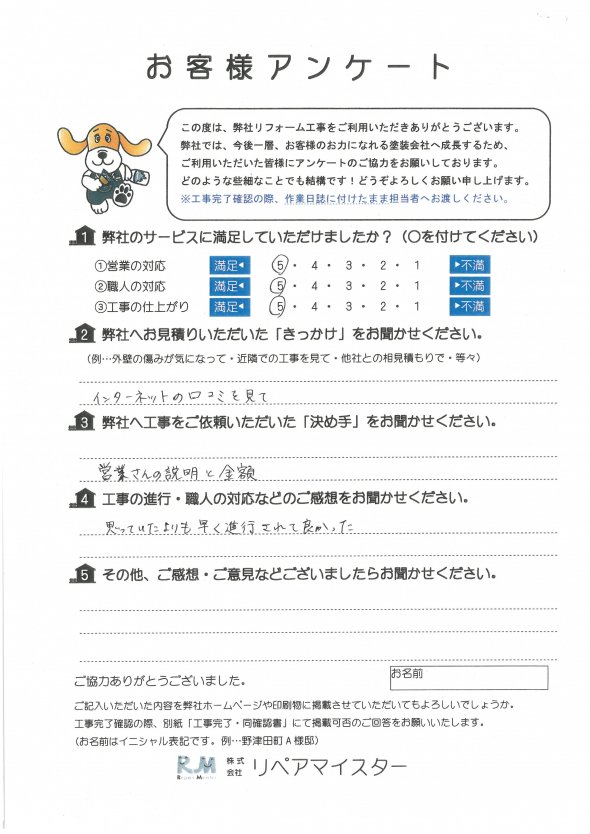 お客様アンケート
この度は、弊社リフォーム工事をご利用いただきありがとうございます。
弊社では、今後一層、お客様のお力になれる塗装会社へ成長するため、
ご利用いただいた皆様にアンケートのご協力をお願いしております。
どのような些細なことでも結構です！どうぞよろしくお願い申し上げます。
※工事完了確認の際、作業日誌に付けたまま担当者へお渡しください。
1 弊社のサービスに満足していただけましたか？（〇を付けてください）
①営業の対応 満足◀ 5・4・3・2・1 ▶不満
②職人の対応 満足◀ 5・4・3・2・1 ▶不満
③工事の仕上がり 満足◀ 5・4・3・2・1 ▶不満
2 弊社へお見積りいただいた「きっかけ」をお聞かせください。
（例…外壁の傷みが気になって・近隣での工事を見て・他社との相見積もりで・等々）
インターネットの口コミを見て
3 弊社へ工事をご依頼いただいた「決め手」をお聞かせください。
営業さんの説明と金額
4 工事の進行・職人の対応などのご感想をお聞かせください。
思っていたよりも早く進行されて良かった
5 その他、ご感想・ご意見などございましたらお聞かせください。
ご協力ありがとうございました。
お名前
ご記入いただいた内容を弊社ホームページや印刷物に掲載させていただいてもよろしいでしょうか。
工事完了確認の際、別紙「工事完了・同確認書」にて掲載可否のご回答をお願いいたします。
（お名前はイニシャル表記です。例…野津田町A様邸）
RM Repair Meister 株式会社 リペアマイスター